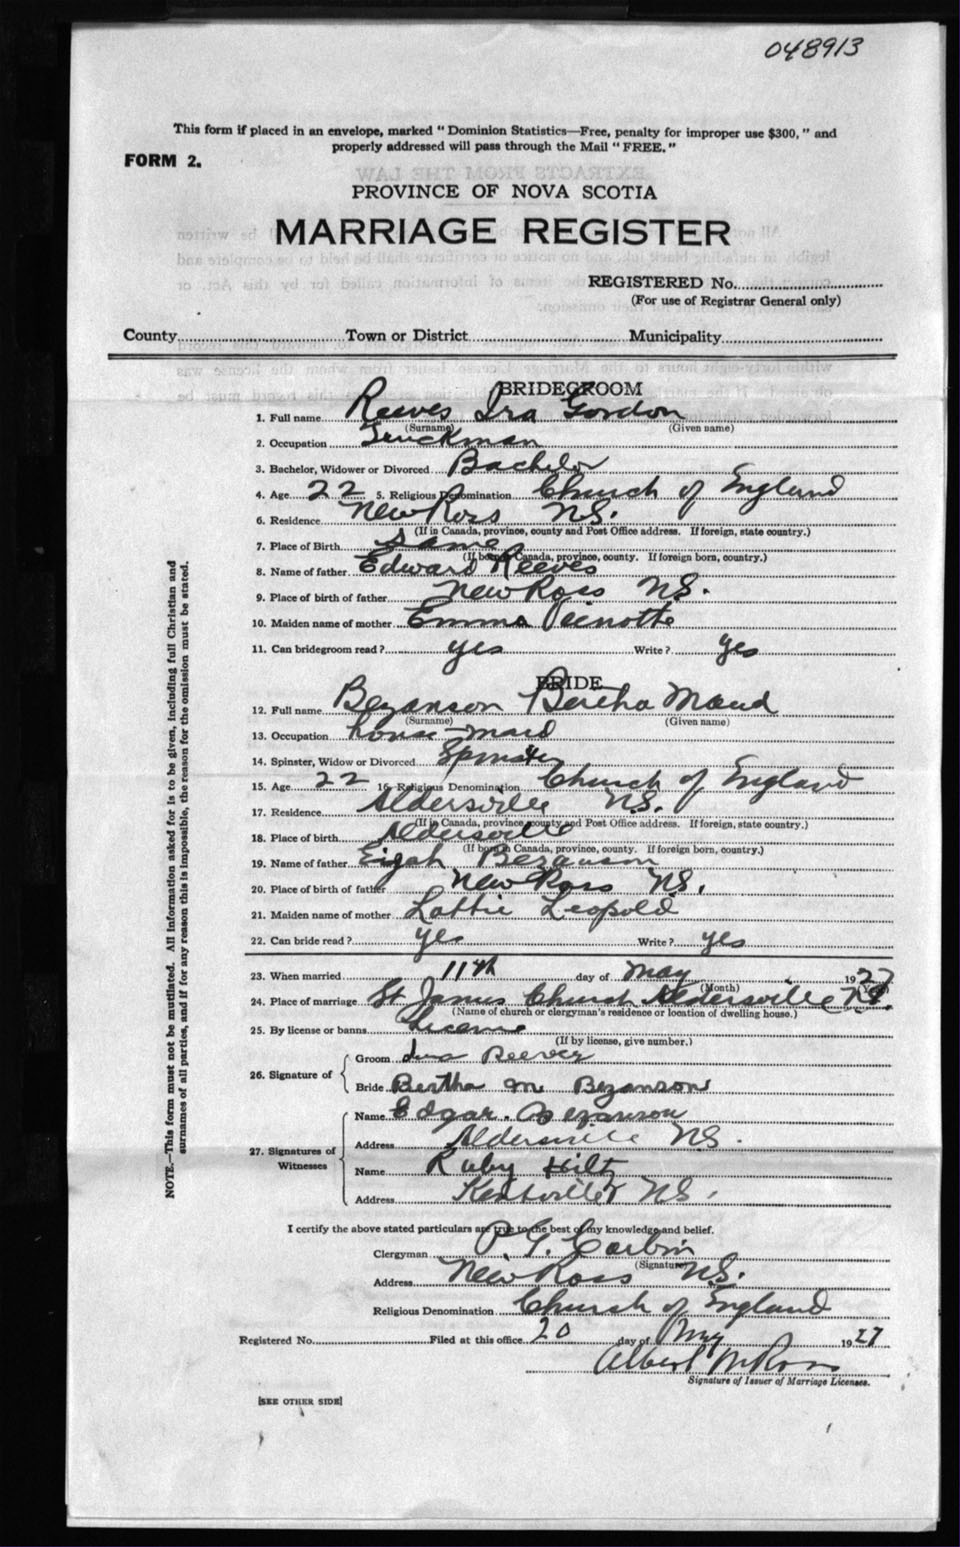 048913
This form if placed in an envelope, marked "Dominion Statistics—Free, penalty for improper use $300," and
properly addressed will pass through the Mail "FREE."
FORM 2.
PROVINCE OF NOVA SCOTIA
MARRIAGE REGISTER
REGISTERED No.
(For use of Registrar General only)
County Town or District Municipality
BRIDEGROOM
1. Full name Reeves Ira Gordon
(Surname) (Given name)
2. Occupation Truckman
3. Bachelor, Widower or Divorced Bachelor
4. Age 22 5. Religious Denomination Church of England
6. Residence New Ross N.S.
(If in Canada, province, county and Post Office address. If foreign, state country.)
7. Place of Birth Same
(If born in Canada, province, county. If foreign born, country.)
8. Name of father Edward Reeves
9. Place of birth of father New Ross N.S.
10. Maiden name of mother Emma
11. Can bridegroom read? yes Write? yes
BRIDE
12. Full name Bezanson Bertha Maud
(Surname) (Given name)
13. Occupation house-maid
14. Spinster, Widow or Divorced Spinster
15. Age 22 16. Religious Denomination Church of England
17. Residence Aldersville N.S.
(If in Canada, province, county and Post Office address. If foreign, state country.)
18. Place of birth Aldersville
(If born in Canada, province, county. If foreign born, country.)
19. Name of father Bezanson
20. Place of birth of father New Ross N.S.
21. Maiden name of mother Lottie Leopold
22. Can bride read? yes Write? yes
23. When married 11th day of May 1927
(Month)
24. Place of marriage St James Church Aldersville N.S.
(Name of church or clergyman's residence or location of dwelling house.)
25. By license or banns License
(If by license, give number.)
26. Signature of
Groom Ira Reeves
Bride Bertha M Bezanson
27. Signatures of Witnesses
Name Edgar Bezanson
Address Aldersville N.S.
Name Ruby Hiltz
Address Kentville N.S.
I certify the above stated particulars are true to the best of my knowledge and belief.
Clergyman P. G. Corbin
(Signature)
Address New Ross N.S.
Religious Denomination Church of England
Registered No. Filed at this office 20 day of May 1927
Albert M Ross
Signature of Issuer of Marriage Licenses.
[SEE OTHER SIDE]
NOTE.—This form must not be mutilated. All information asked for is to be given, including full Christian and
surnames of all parties, and if for any reason this is impossible, the reason for the omission must be stated.